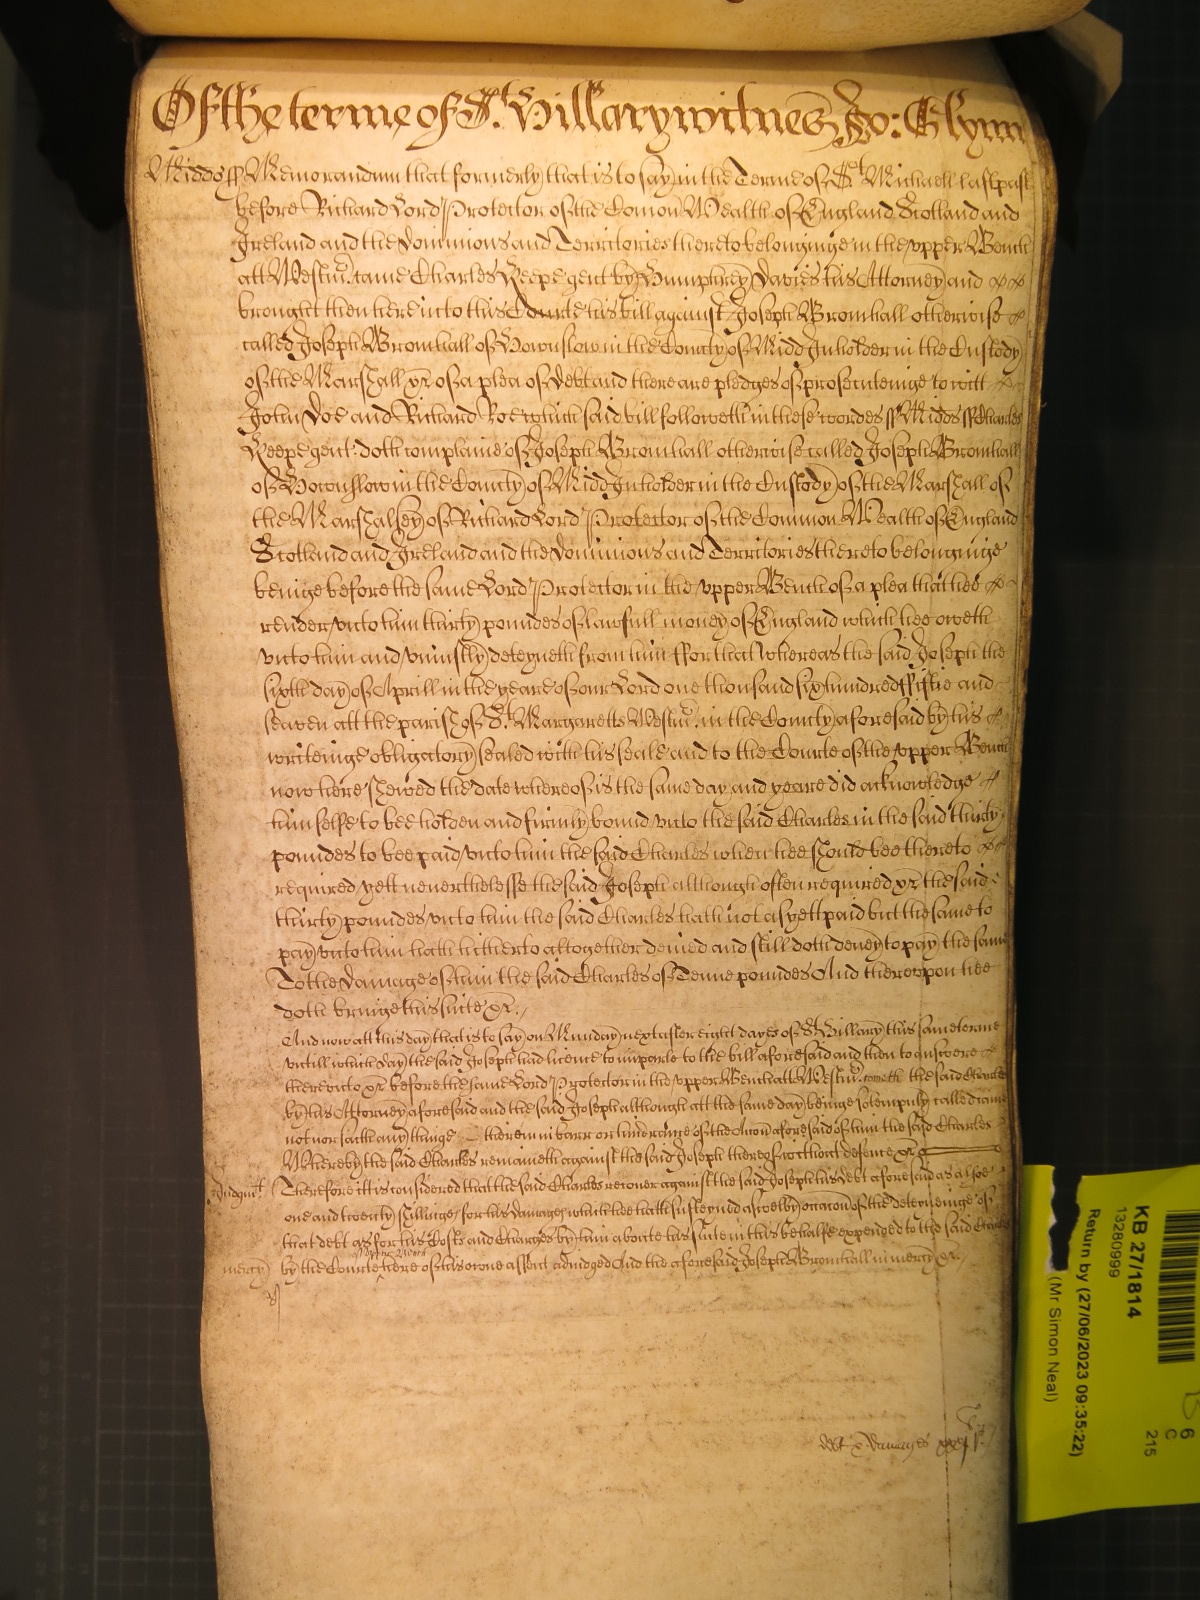 Of the terme of St. Hillary witnes Jo: Glynn
Midds ss Memorandum that formerly that is to say in the Terme of St Michaell last past
before Richard Lord Protector of the Comon Wealth of England Scotland and
Ireland and the Dominions and Territories thereto belonginge in the vpper Bench
att Westmr. came Charles Keepe gent by Humphrey Davies his Attorney and
brought then here into this Courte his bill against Joseph Bromhall otherwise
called Joseph Bromhall of Hownslow in the County of Midd Inholder in the Custody
of the Marshall &c. of a plea of debt and there are pledges of prosecuteinge to witt
John Doe and Richard Roe which said bill followeth in these wordes ss Midds ss Charles
Keepe gent. doth complaine of Joseph Bromhall otherwise called Joseph Bromhall
of Hownslow in the County of Midd Inholder in the Custody of the Marshall of
the Marshalsey of Richard Lord Protector of the Common Wealth of England
Scotland and Ireland and the Dominions and Territories thereto belonginge
beinge before the same Lord Protector in the vpper Bench of a plea that hee
render vnto him thirty poundes of lawfull money of England which hee oweth
vnto him and vniustly deteyneth from him ffor that whereas the said Joseph the
sixth day of Aprill in the yeare of our Lord one thousand six hundred ffiftie and
seaven att the parish of St. Margaretts Westmr. in the County aforesaid by his
writeinge obligatory sealed with his seale and to the Courte of the vpper Bench
now here shewed the date whereof is the same day and yeare did acknowledge
himselfe to bee holden and firmly bound vnto the said Charles in the said thirty
poundes to bee paid vnto him the said Charles when hee should bee thereto
required yett neverthelesse the said Joseph although often required &c. the said
thirty poundes vnto him the said Charles hath not as yett paid but the same to
pay vnto him hath hitherto altogether denied and still doth deney to pay the same
To the damage of him the said Charles of Tenne poundes And therevpon hee
doth bringe his suite &c.
And now att this day that is to say on Munday next after eight dayes of St Hillary this same terme
vntill which day the said Joseph had licence to imparle to the bill aforesaid and then to answere
therevnto &c. before the same Lord Protector in the vpper Bench att Westmr. cometh the said Charles
by his Attorney aforesaid and the said Joseph although att the same day beinge solempnly called came
not nor saith any thinge therein in barr or hinderance of the Accon aforesaid of him the said Charles
Whereby the said Charles remaineth against the said Joseph thereof without defence &c.
Judgmt. Therefore itt is considered that the said Charles recover against the said Joseph his debt aforesaid as alsoe
one and twenty shillinges for his damages which hee hath susteyned aswell by occacon of the deteyneinge of
that debt as for his Costs and Charges by him aboute his suite in this behalfe expended to the said Charles
mercy by the Courte here of his owne assent adiudged And the aforesaid Joseph Bromhall in mercy &c.
damages xxjs.
KB 27/1814
13280999
Return by (27/06/2023 09:35:22)
(Mr Simon Neal)
6
C
215